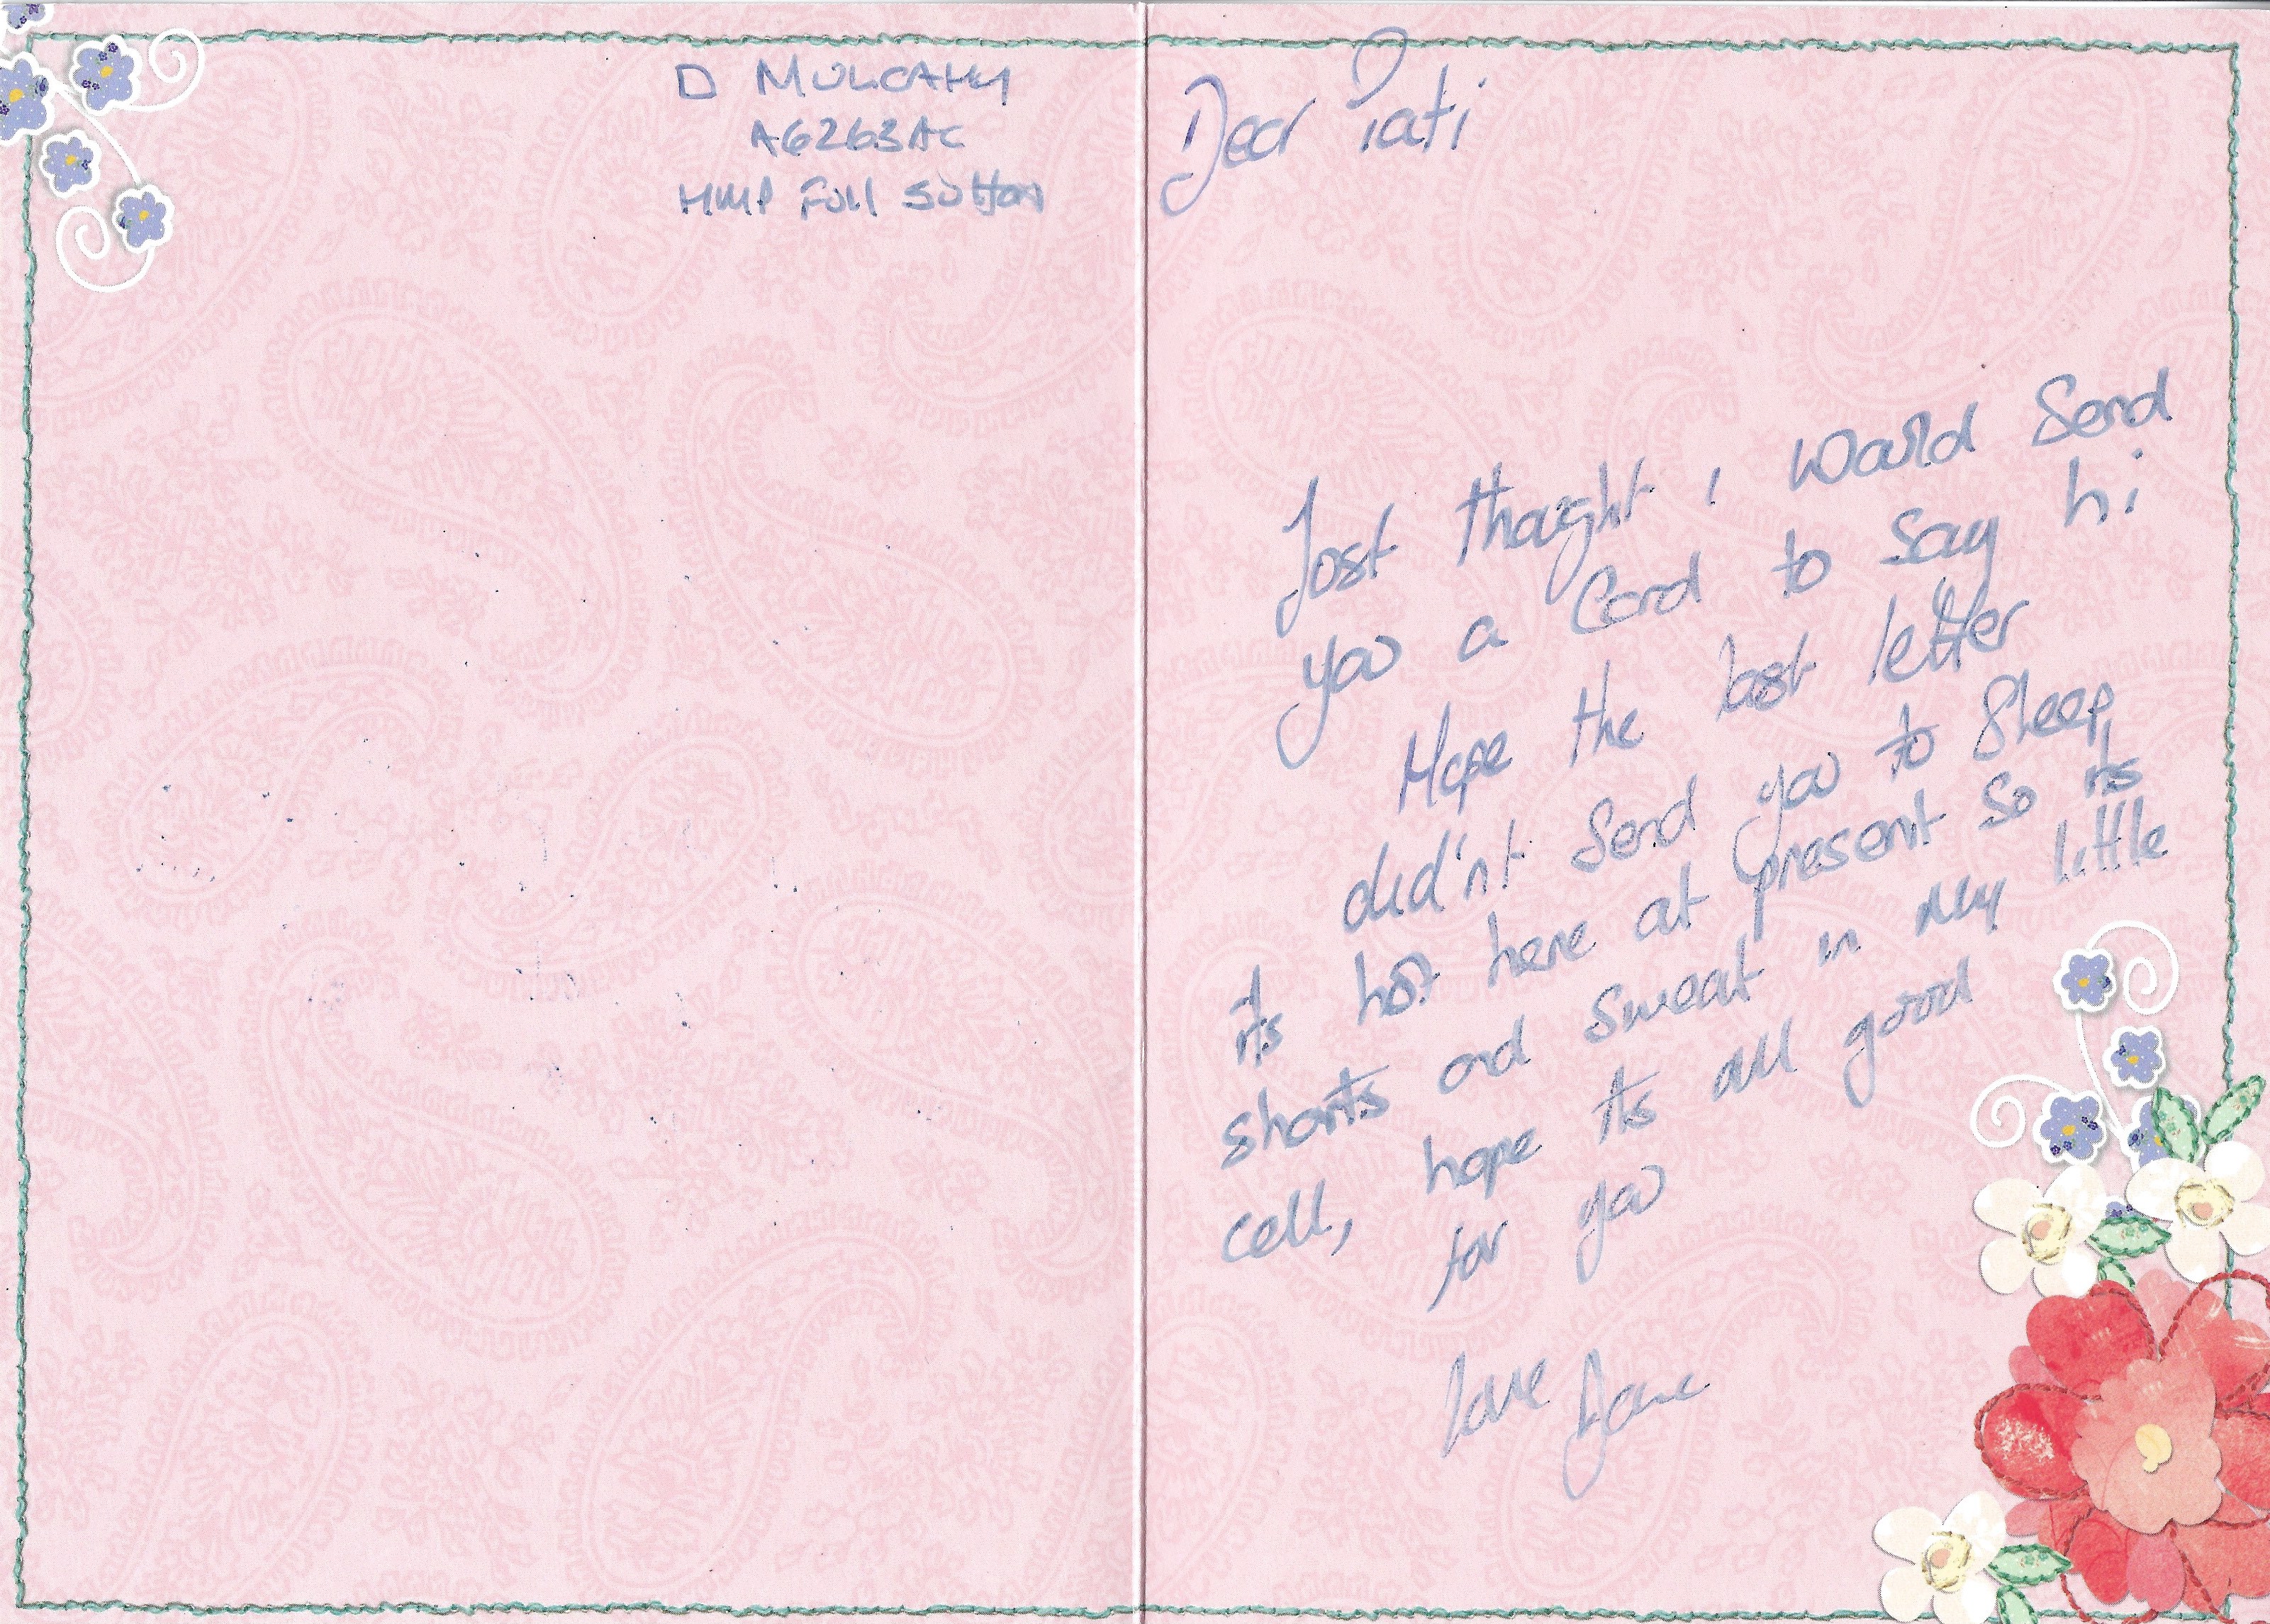 D MULCAHY
A6263AC
HMP Full Sutton
Dear Pati
Just thought i Would Send
you a Card to say hi
Hope the last letter
did'nt Send you to Sleep,
its hot here at present so its
shorts and sweat in My little
cell, hope its all good
for you
love Dave